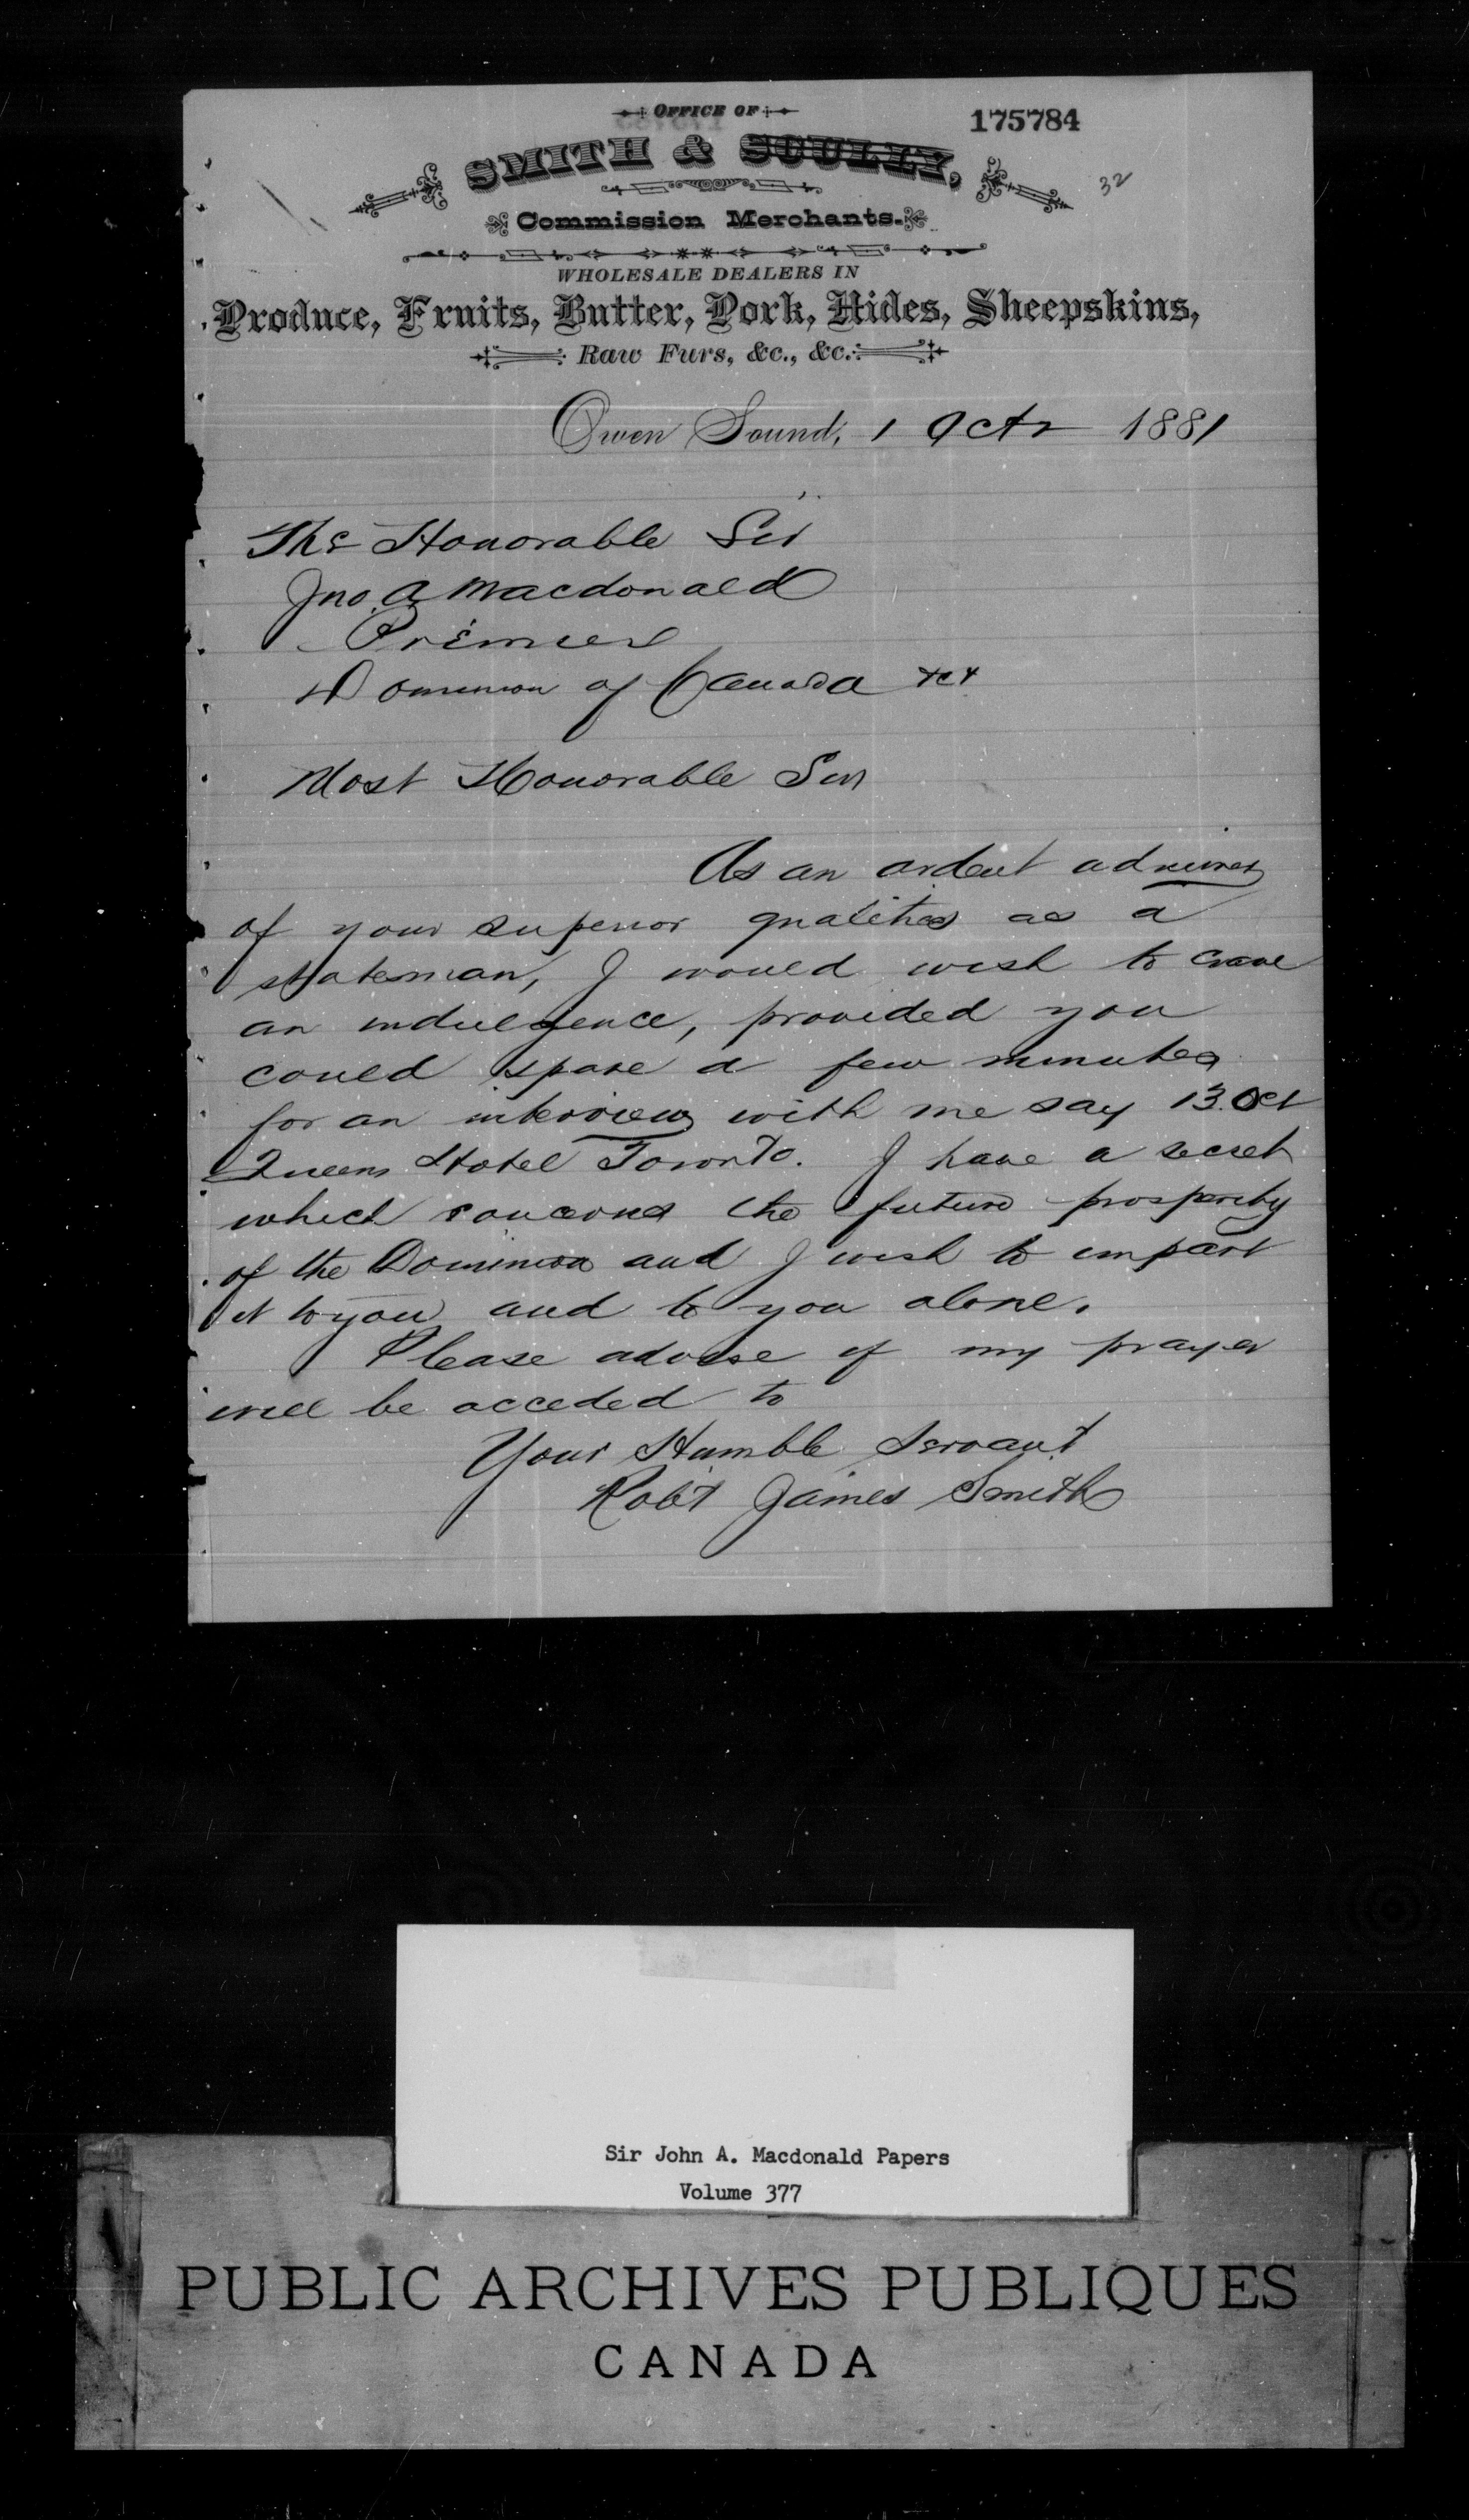 OFFICE OF
175784
SMITH & SCULLY,
32
Commission Merchants.
WHOLESALE DEALERS IN
Produce, Fruits, Butter, Pork, Hides, Sheepskins,
Raw Furs, &c., &c.
Owen Sound, 1 Octr 1881
The Honorable Sir
Jno. A Macdonald
Premier
Dominion of Canada &c&
Most Honorable Sir
As an ardent admirer
of your superior qualities as a
statesman, I would wish to crave
an indulgence, provided you
could spare a few minutes
for an interview with me say 13. Oct
Queens Hotel Toronto. I have a secret
which concerns the future prosperity
of the Dominion and I wish to impart
it to you and to you alone.
Please advise if my prayer
will be acceded to
Your Humble Servant
Robt James Smith
Sir John A. Macdonald Papers
Volume 377
PUBLIC ARCHIVES PUBLIQUES
CANADA